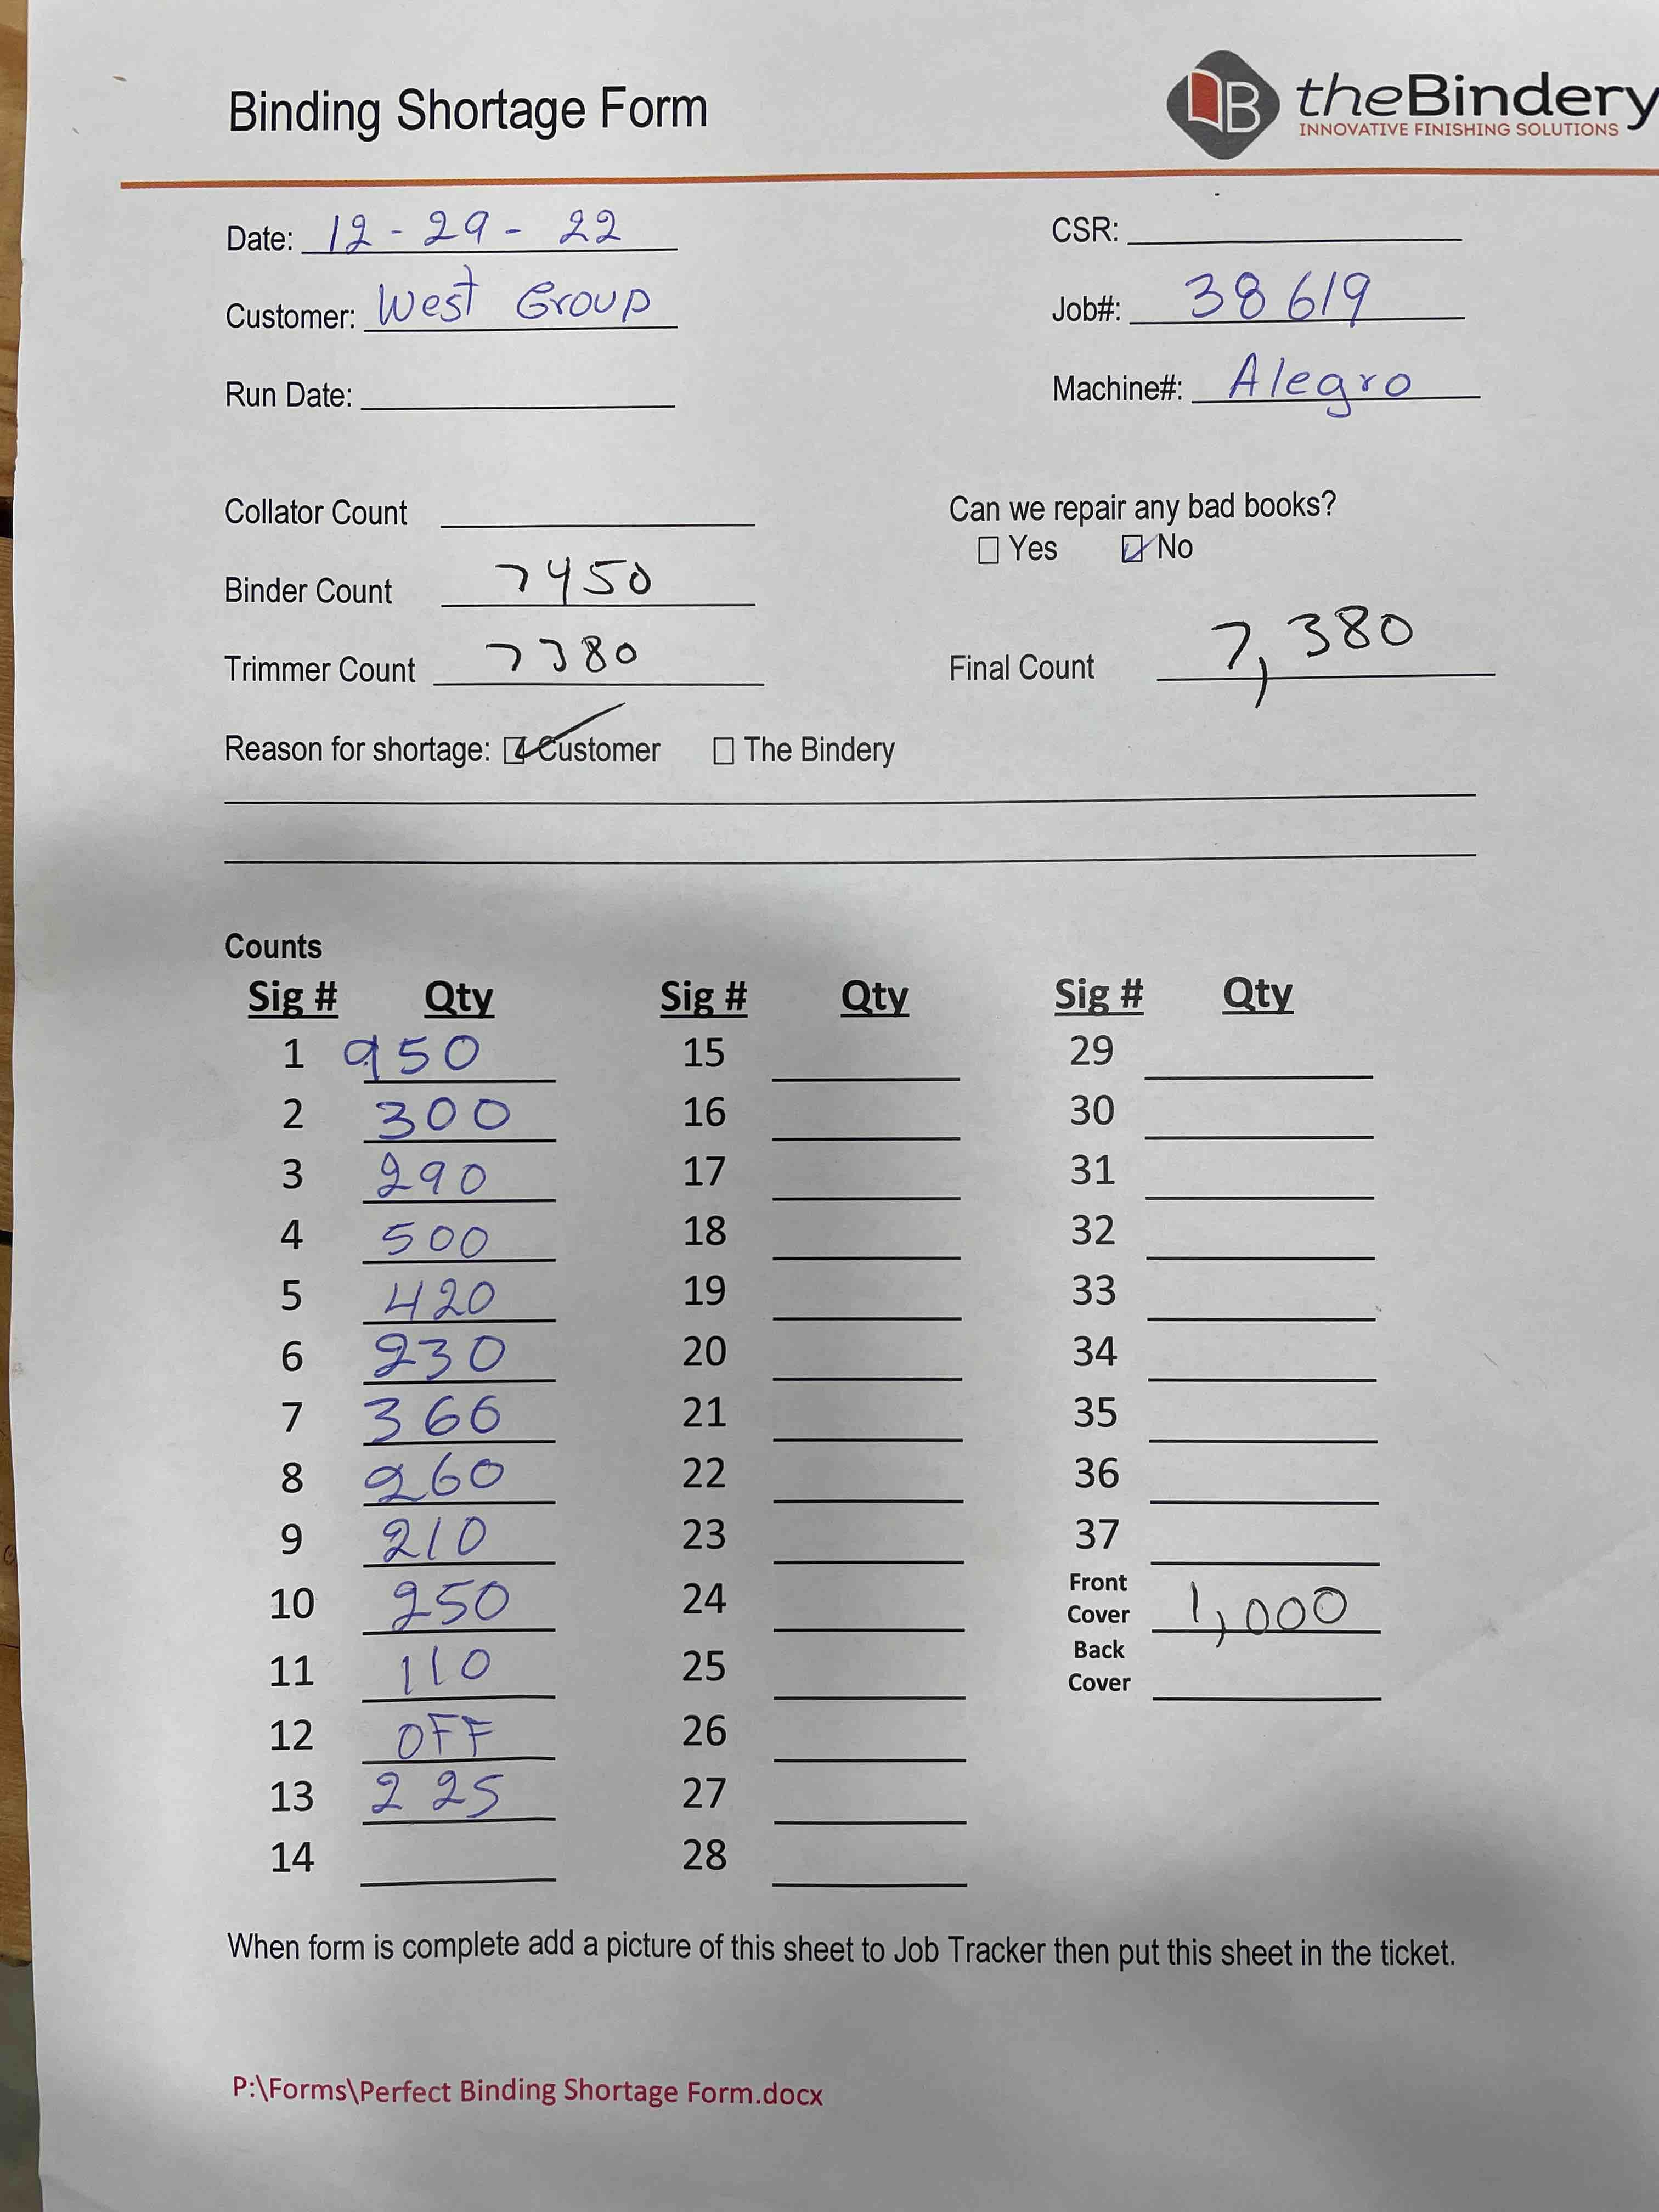 Binding Shortage Form
theBindery
INNOVATIVE FINISHING SOLUTIONS
Date: 12 - 29 - 22 CSR:
Customer: West Group Job#: 38619
Run Date: Machine#: Alegro
Collator Count Can we repair any bad books?
Yes No
Binder Count 7450
Trimmer Count 7380 Final Count 7,380
Reason for shortage: Customer The Bindery
Counts
Sig # Qty Sig # Qty Sig # Qty
1 950 15 29
2 300 16 30
3 290 17 31
4 500 18 32
5 420 19 33
6 230 20 34
7 360 21 35
8 260 22 36
9 210 23 37
10 250 24 Front Cover 1,000
11 110 25 Back Cover
12 OFF 26
13 225 27
14 28
When form is complete add a picture of this sheet to Job Tracker then put this sheet in the ticket.
P:\Forms\Perfect Binding Shortage Form.docx